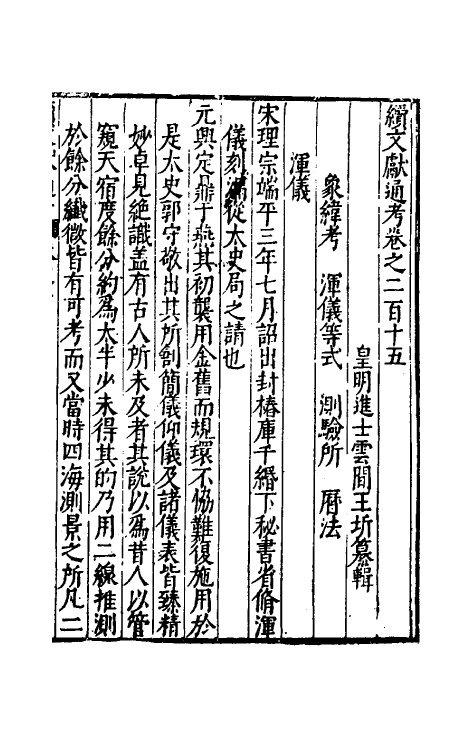 續文獻通考卷之二百十五
皇明進士雲間王圻纂輯
象緯考　渾儀等式　測驗所　曆法
渾儀
宋理宗端平三年七月詔出封樁庫千緡下秘書省脩渾
儀刻漏從太史局之請也
元興定鼎于燕其初襲用金舊而規環不協難復施用於
是太史郭守敬出其所創簡儀仰儀及諸儀表皆臻精
妙卓見絕識盖有古人所未及者其說以爲昔人以管
窺天宿度餘分約爲太半少未得其的乃用二線推測
於餘分纖微皆有可考而又當時四海測景之所凡二